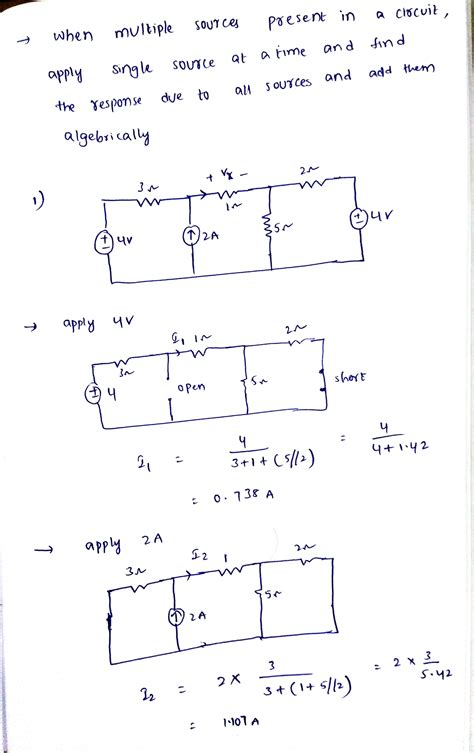 → When multiple sources present in a circuit,
apply single source at a time and find
the response due to all sources and add them
algebrically
1)
3Ω + Vx - 2Ω
1Ω
4V 2A 5Ω 4V
→ apply 4V
I1 1Ω 2Ω
3Ω
4 open 5Ω short
I1 = 4 / 3+1+(5//2) = 4 / 4+1.42
= 0.738 A
→ apply 2A
3Ω I2 1 2Ω
2A 5Ω
I2 = 2 × 3 / 3+(1+5//2) = 2 × 3 / 5.42
= 1.107 A